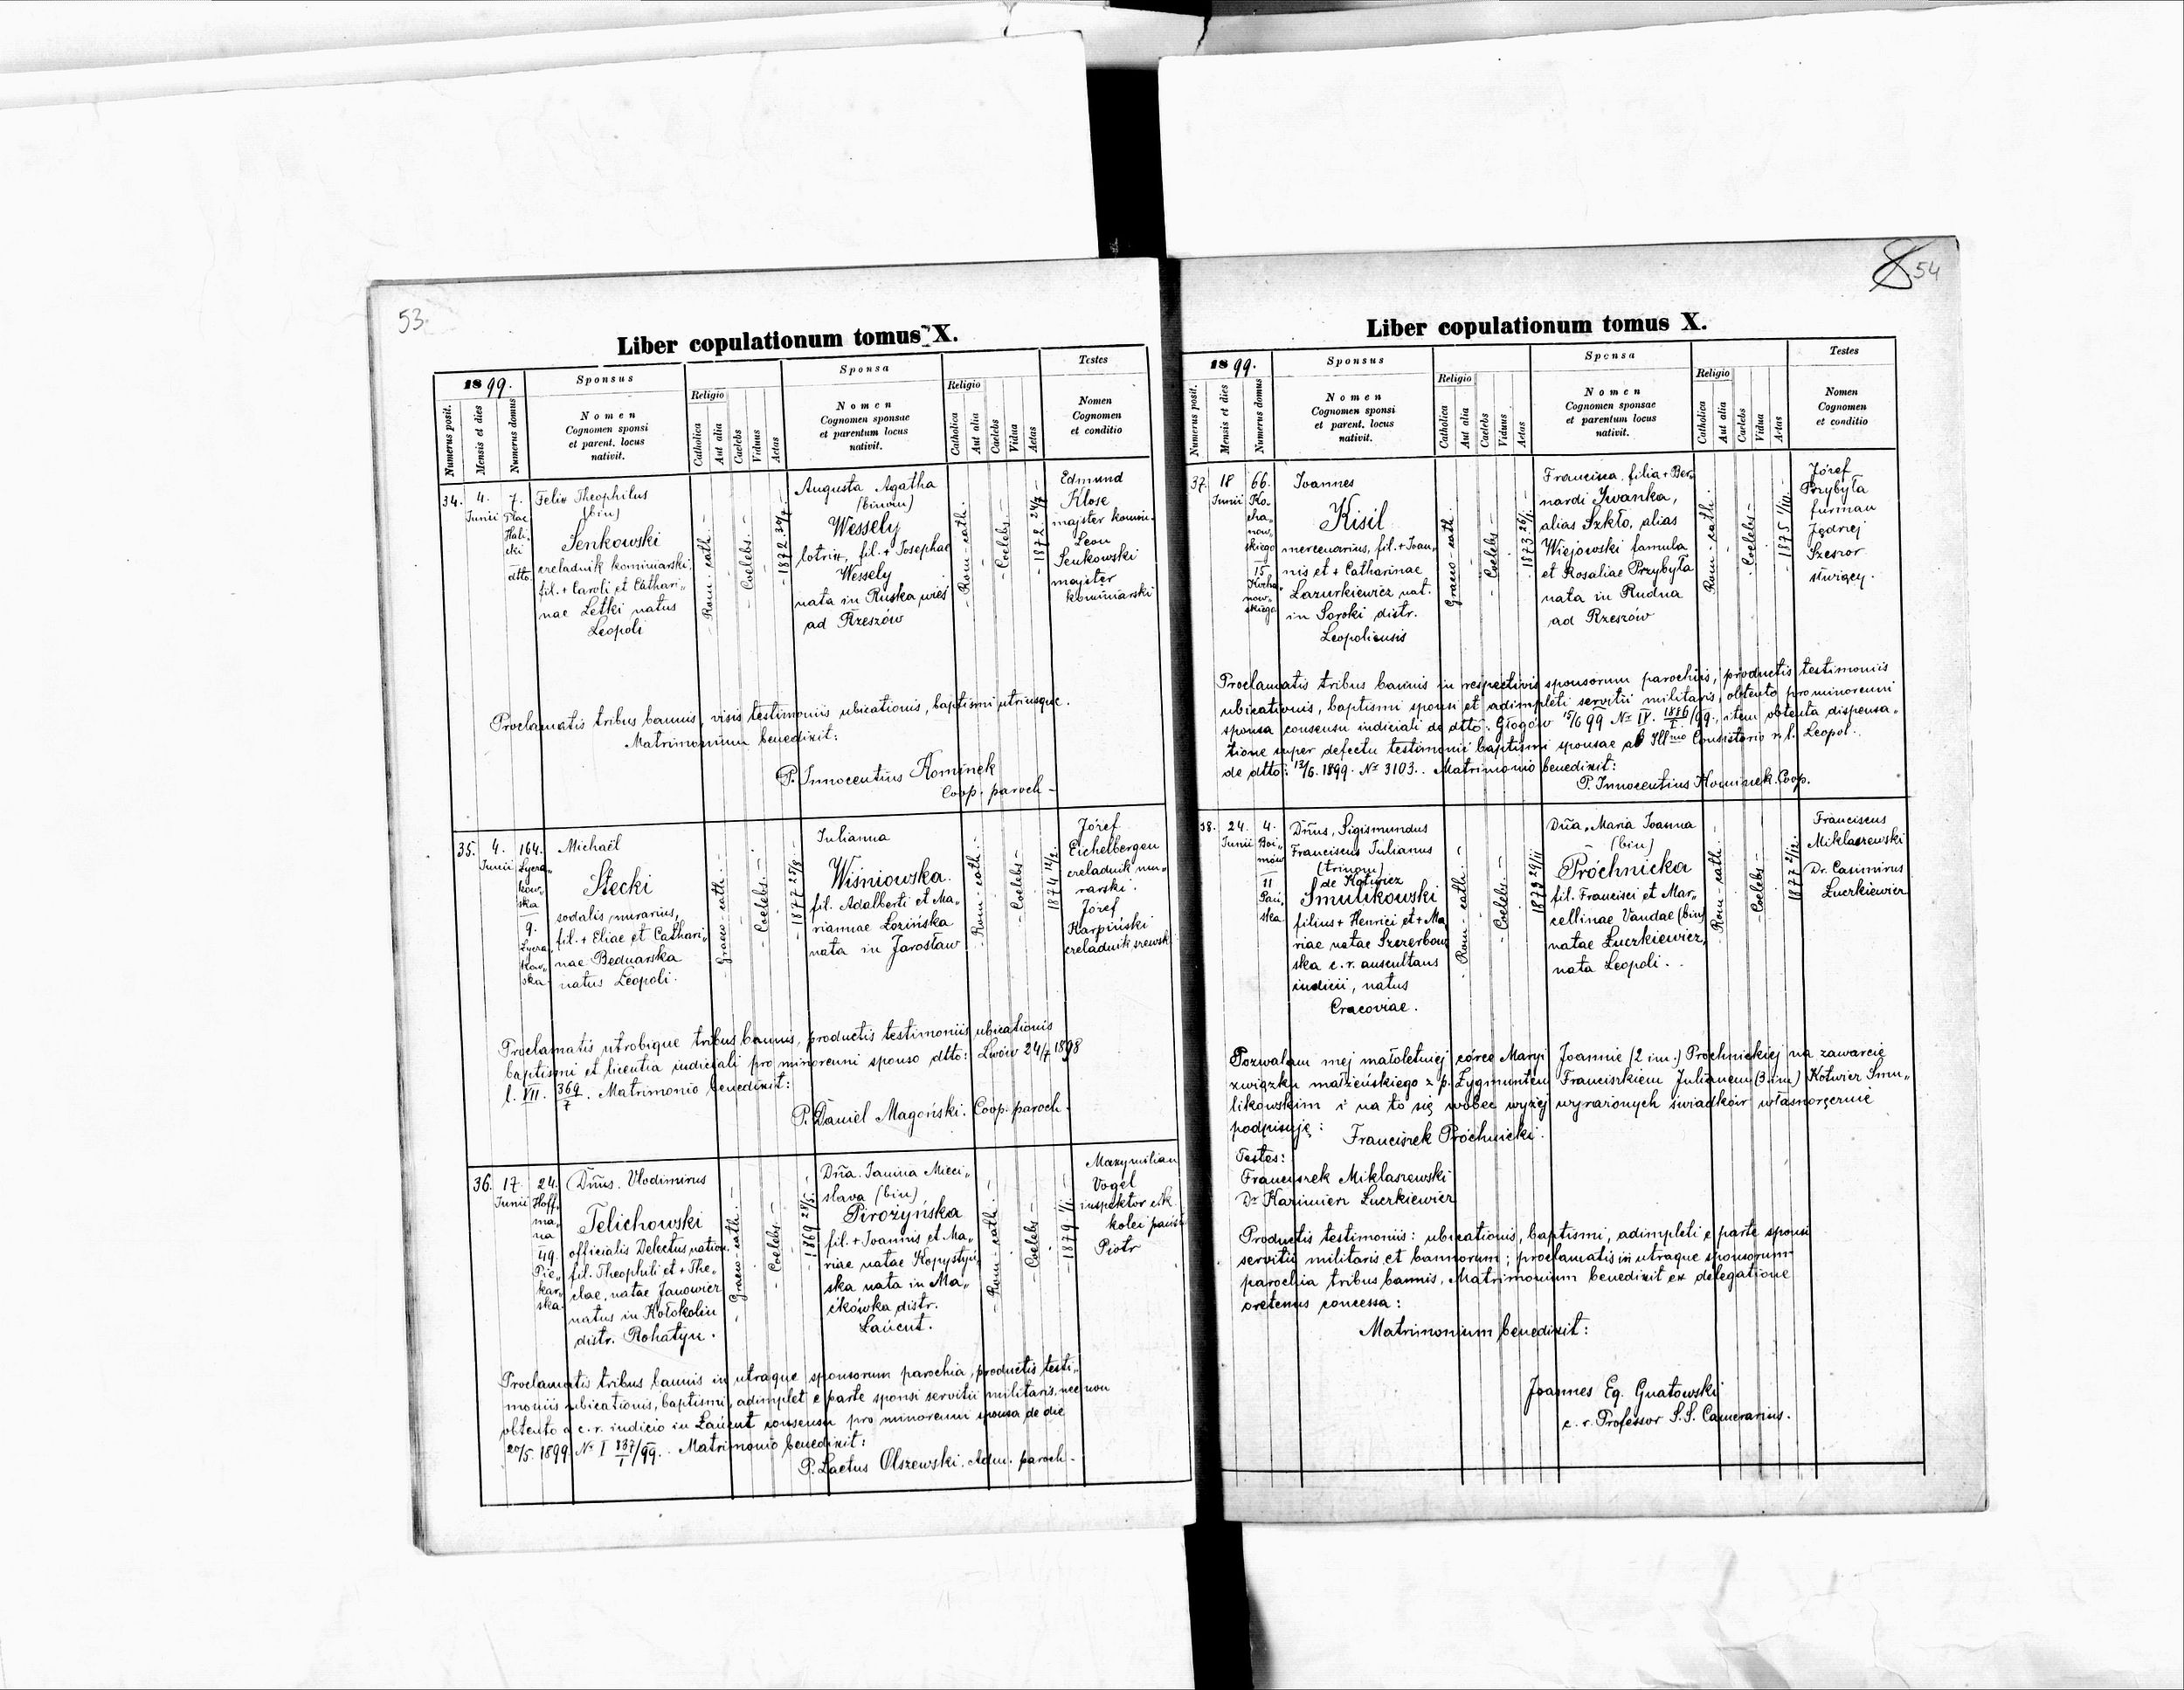 53.
Liber copulationum tomus X.
1899.
Sponsus
Sponsa
Testes
Numerus posit.
Mensis et dies
Numerus domus
Nomen
Cognomen sponsi
et parent. locus
nativit.
Religio
Catholica
Aut alia
Caelebs
Viduus
Aetas
Nomen
Cognomen sponsae
et parentum locus
nativit.
Religio
Catholica
Aut alia
Caelebs
Vidua
Aetas
Nomen
Cognomen
et conditio
34.
4.
Junii
7.
Plac
Hali-
cki
dtto.
Felix Theophilus
(bin)
Senkowski
czeladnik kominiarski,
fil. + Caroli et Cathari„
nae Letki natus
Leopoli
- Rom - cath. -
- Coelebs. -
- 1872 30/7. -
Augusta Agatha
(binom)
Wessely
lotrix, fil. + Josephae
Wessely
nata in Ruska wieś
ad Rzeszów
- Rom - cath. -
- Coelebs. -
- 1872 24/7 -
Edmund
Klose
majster komin.
Leon
Senkowski
majster
kominiarski
Proclamatis tribus bannis, visis testimoniis ubicationis, baptismi utriusque.
Matrimonium benedixit:
P. Innocentius Kominek
Coop. paroch -
35.
4.
Junii
164.
Lycza„
kow„
ska
9.
Lycza„
kow„
ska
Michaël
Stecki
sodalis murarius,
fil. + Eliae et Cathari„
nae Bednarska
natus Leopoli.
Graeco - cath. -
- Coelebs. -
- 1877 25/8 -
Julianna
Wiśniowska.
fil. Adalberti et Ma„
riannae Lozińska
nata in Jarosław
- Rom - cath. -
- Coelebs -
1874 12/2. -
Józef
Eichelberger
czeladnik mu„
rarski.
Józef
Karpiński
czeladnik szewsk.
Proclamatis utrobique tribus bannis, productis testimoniis ubicationis
baptismi et licentia iudiciali pro minorenni sponso dtto: Lwów 24/7 1898
l. VII. 369/7. Matrimonio benedixit:
P. Daniel Magoński. Coop. paroch.
36.
17.
Junii
24.
Hoff„
ma„
na
49.
Pie„
kar„
ska
Dñus. Vlodimirus
Telichowski
officialis Delectus nation.
fil. Theophili et + The„
clae, natae Janowicz
natus in Kołokolin
distr. Rohatyn.
- Graeco - cath. -
- Coelebs -
- 1869 28/5. -
Dña. Janina Mieci„
slava (bin)
Pirożyńska
fil. + Joannis et Ma„
riae natae Kopystyń„
ska nata in Ma„
ćkówka distr.
Łańcut.
- Rom - cath. -
- Coelebs -
- 1879 1/1. -
Maxymilian
Vogel
inspektor c. k.
kolei pańs.
Piotr
Proclamatis tribus bannis in utraque sponsorum parochia, productis testi„
moniis ubicationis, baptismi, adimplet e parte sponsi servitii militaris, nec non
obtento a c. r. iudicio in Łańcut consensu pro minorenni sponsa de die
20/5. 1899. No I 837/1/99. Matrimonio benedixit:
P. Laetus Olszewski. Adm. paroch -
54
Liber copulationum tomus X.
1899.
Sponsus
Sponsa
Testes
Numerus posit.
Mensis et dies
Numerus domus
Nomen
Cognomen sponsi
et parent. locus
nativit.
Religio
Catholica
Aut alia
Caelebs
Viduus
Aetas
Nomen
Cognomen sponsae
et parentum locus
nativit.
Religio
Catholica
Aut alia
Caelebs
Vidua
Aetas
Nomen
Cognomen
et conditio
37.
18
Junii
66.
Ko„
cha„
now„
skiego
15
Kocha„
now„
skiego
Joannes
Kisil
mercenarius, fil. + Joan„
nis et + Catharinae
Lazurkiewicz nat.
in Soroki distr.
Leopoliensis
Graeco - cath.
- Coelebs -
- 1873 26/1. -
Francisca, filia + Ber„
nardi Iwanka,
alias Szkło, alias
Wiejowski famula
et Rosaliae Przybyła
nata in Rudna
ad Rzeszów
Rom - cath.
- Coelebs -
- 1875 1/10. -
Józef
Przybyła
furman
Jędrzej
Szeszor
służący.
Proclamatis tribus bannis in respectivis sponsorum parochiis, productis testimoniis
ubicationis, baptismi sponsi et adimpleti servitii militaris, obtento pro minorenni
sponsa consensu iudiciali de dtto: Głogów 15/6 99 No IV. 1886/1/99., item obtenta dispensa„
tione super defectu testimonii baptismi sponsae ab Illmo Consistorio r. l. Leopol.
de dtto: 13/6. 1899. No 3103.. Matrimonio benedixit:
P. Innocentius Kominek. Coop.
38.
24.
Junii
4.
Boi„
mów
11
Pań„
ska
Dñus, Sigismundus
Franciscus Julianus
(trinom)
de Kotwicz
Smulikowski
filius + Henrici et + Ma
riae natae Szczerbow
ska c. r. auscultans
iudicii, natus
Cracoviae.
- Rom - cath. -
- Coelebs -
Dña, Maria Joanna
(bin)
Próchnicka
fil. Francisci et Mar„
cellinae Vandae (bin)
natae Łuczkiewicz,
nata Leopoli. .
- Rom - cath. -
- Coelebs -
1877 2/12.
Franciscus
Miklaszewski
Dr. Casimirus
Łuczkiewicz
Pozwalam mej małoletniej córce Maryi Joannie (2 im.) Próchnickiej na zawarcie
związku małżeńskiego z p. Zygmuntem Franciszkiem Julianem (3 im) Kotwicz Smu„
likowskim i na to się wobec wyżej wyrażonych świadków własnoręcznie
podpisuję: Franciszek Próchnicki.
Testes:
Franciszek Miklaszewski
Dr Kazimierz Łuczkiewicz
Productis testimoniis: ubicationis, baptismi, adimpleti e parte sponsi
servitii militaris et bannorum; proclamatis in utraque sponsorum
parochia tribus bannis, Matrimonium benedixit ex delegatione
oretenus concessa:
Matrimonium benedixit:
Joannes Eq. Gnatowski
c. r. Professor S. S. Camerarius.